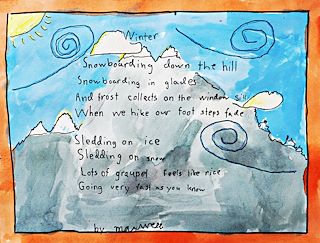 Winter
Snowboarding down the hill
Snowboarding in glades
And frost collects on the window sill
When we hike our foot steps fade
Sledding on ice
Sledding on snow
Lots of graupel feels like rice
Going very fast as you know
by maxwell